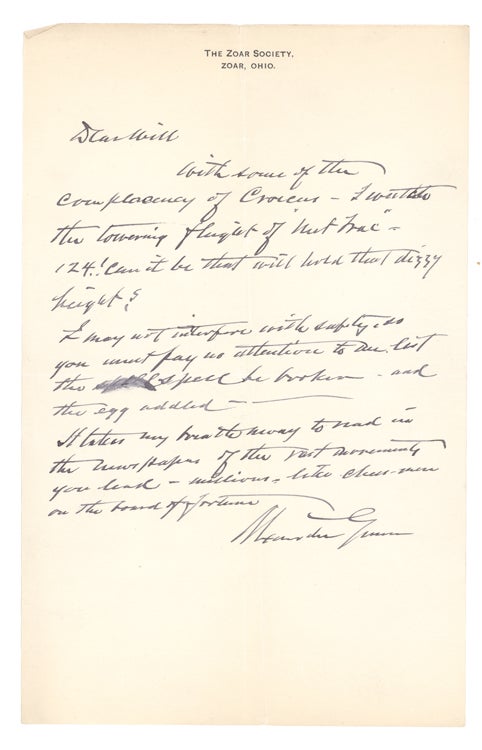 THE ZOAR SOCIETY.
ZOAR, OHIO.
Dear Will
With some of the
complacency of Croesus – I watch
the towering flight of "Met Trac" –
124! Can it be that will hold that dizzy
height?
I may not interfere with safety, so
you must pay no attention to me. lest
the spell be broken – and
the egg addled –
It takes my breath away to read in
the newspapers of the vast movements
you lead – millions – like chess-men
on the board of fortune
Alexander Gunn